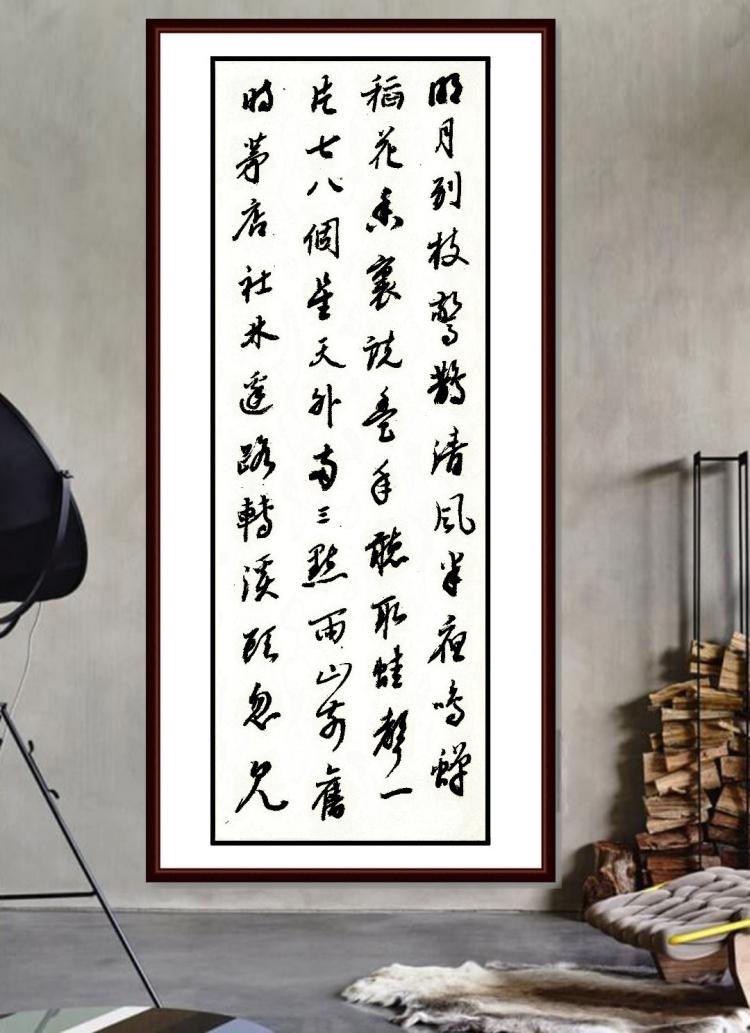 明月別枝驚鵲清風半夜鳴蟬
稻花香裏說豐年聽取蛙聲一
片七八個星天外兩三點雨山前舊
時茅店社林邊路轉溪頭忽見